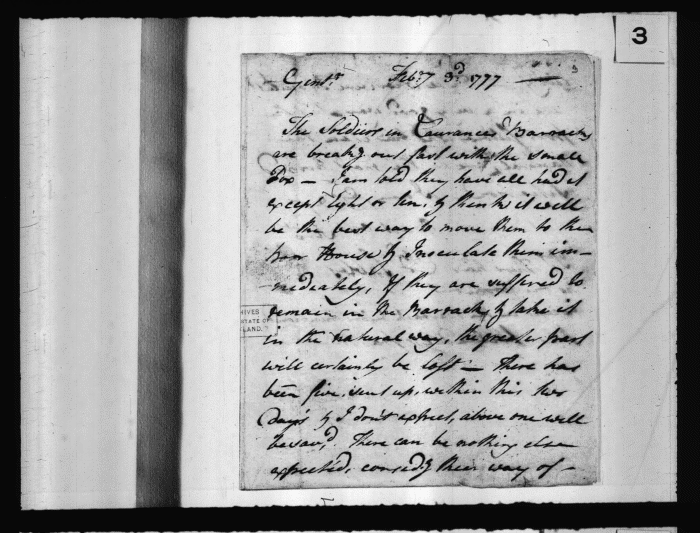 3
Gentn. Feby 3d 1777 —
The Soldiers in Barracks
are breakg out fast with the small
Pox — I am told they have all had it
except Eight or ten, & think it will
be the best way to move them to the
poor House & Inoculate them im=
=mediately, If they are suffered to
remain in the Barracks & take it
in the natural way, the greater part
will certainly be lost — There has
been five, sent up, within this two
Days & I don't expect, above one will
be sav'd. There can be nothing else
expected, considg their way of —
HIVES
STATE OF
LAND.